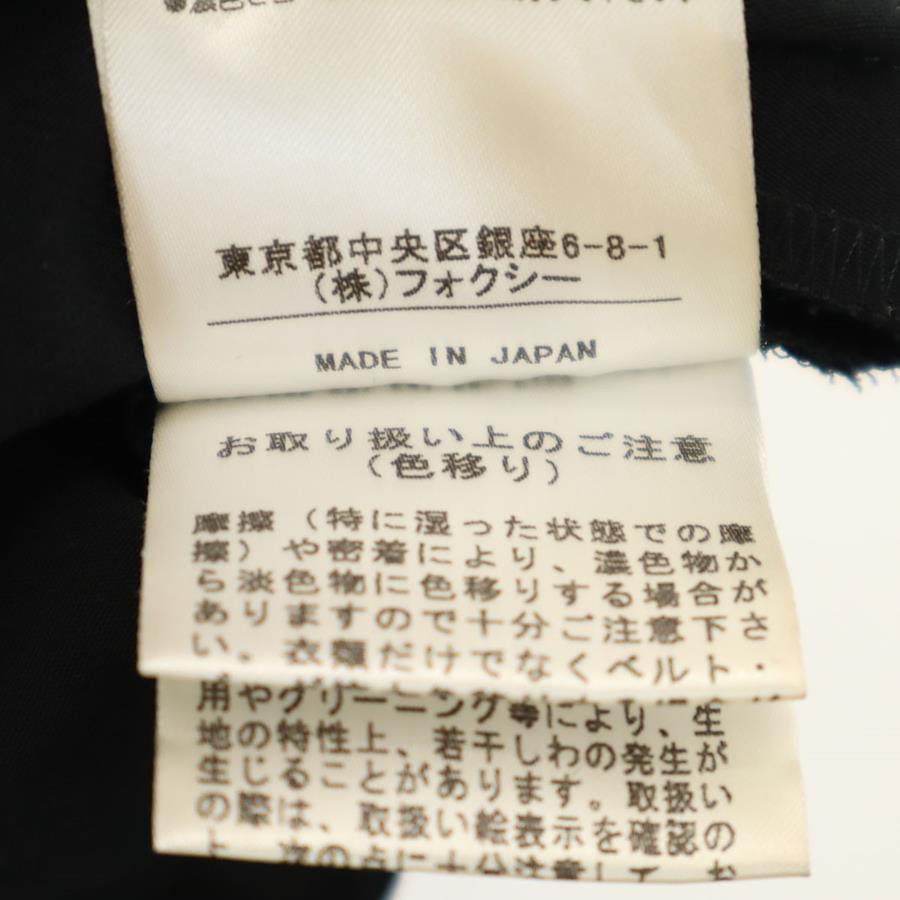 東京都中央区銀座6-8-1
(株)フォクシー
MADE IN JAPAN
お取り扱い上のご注意
(色移り)
摩擦(特に湿った状態での摩
擦)や密着により、濃色物か
ら淡色物に色移りする場合が
ありますので十分ご注意下さ
い。衣類だけでなくベルト・
用やクリーニング等により、生
地の特性上、若干しわの発生が
生じることがあります。取扱い
の際は、取扱い絵表示を確認の
上、次の点に十分注意して、お